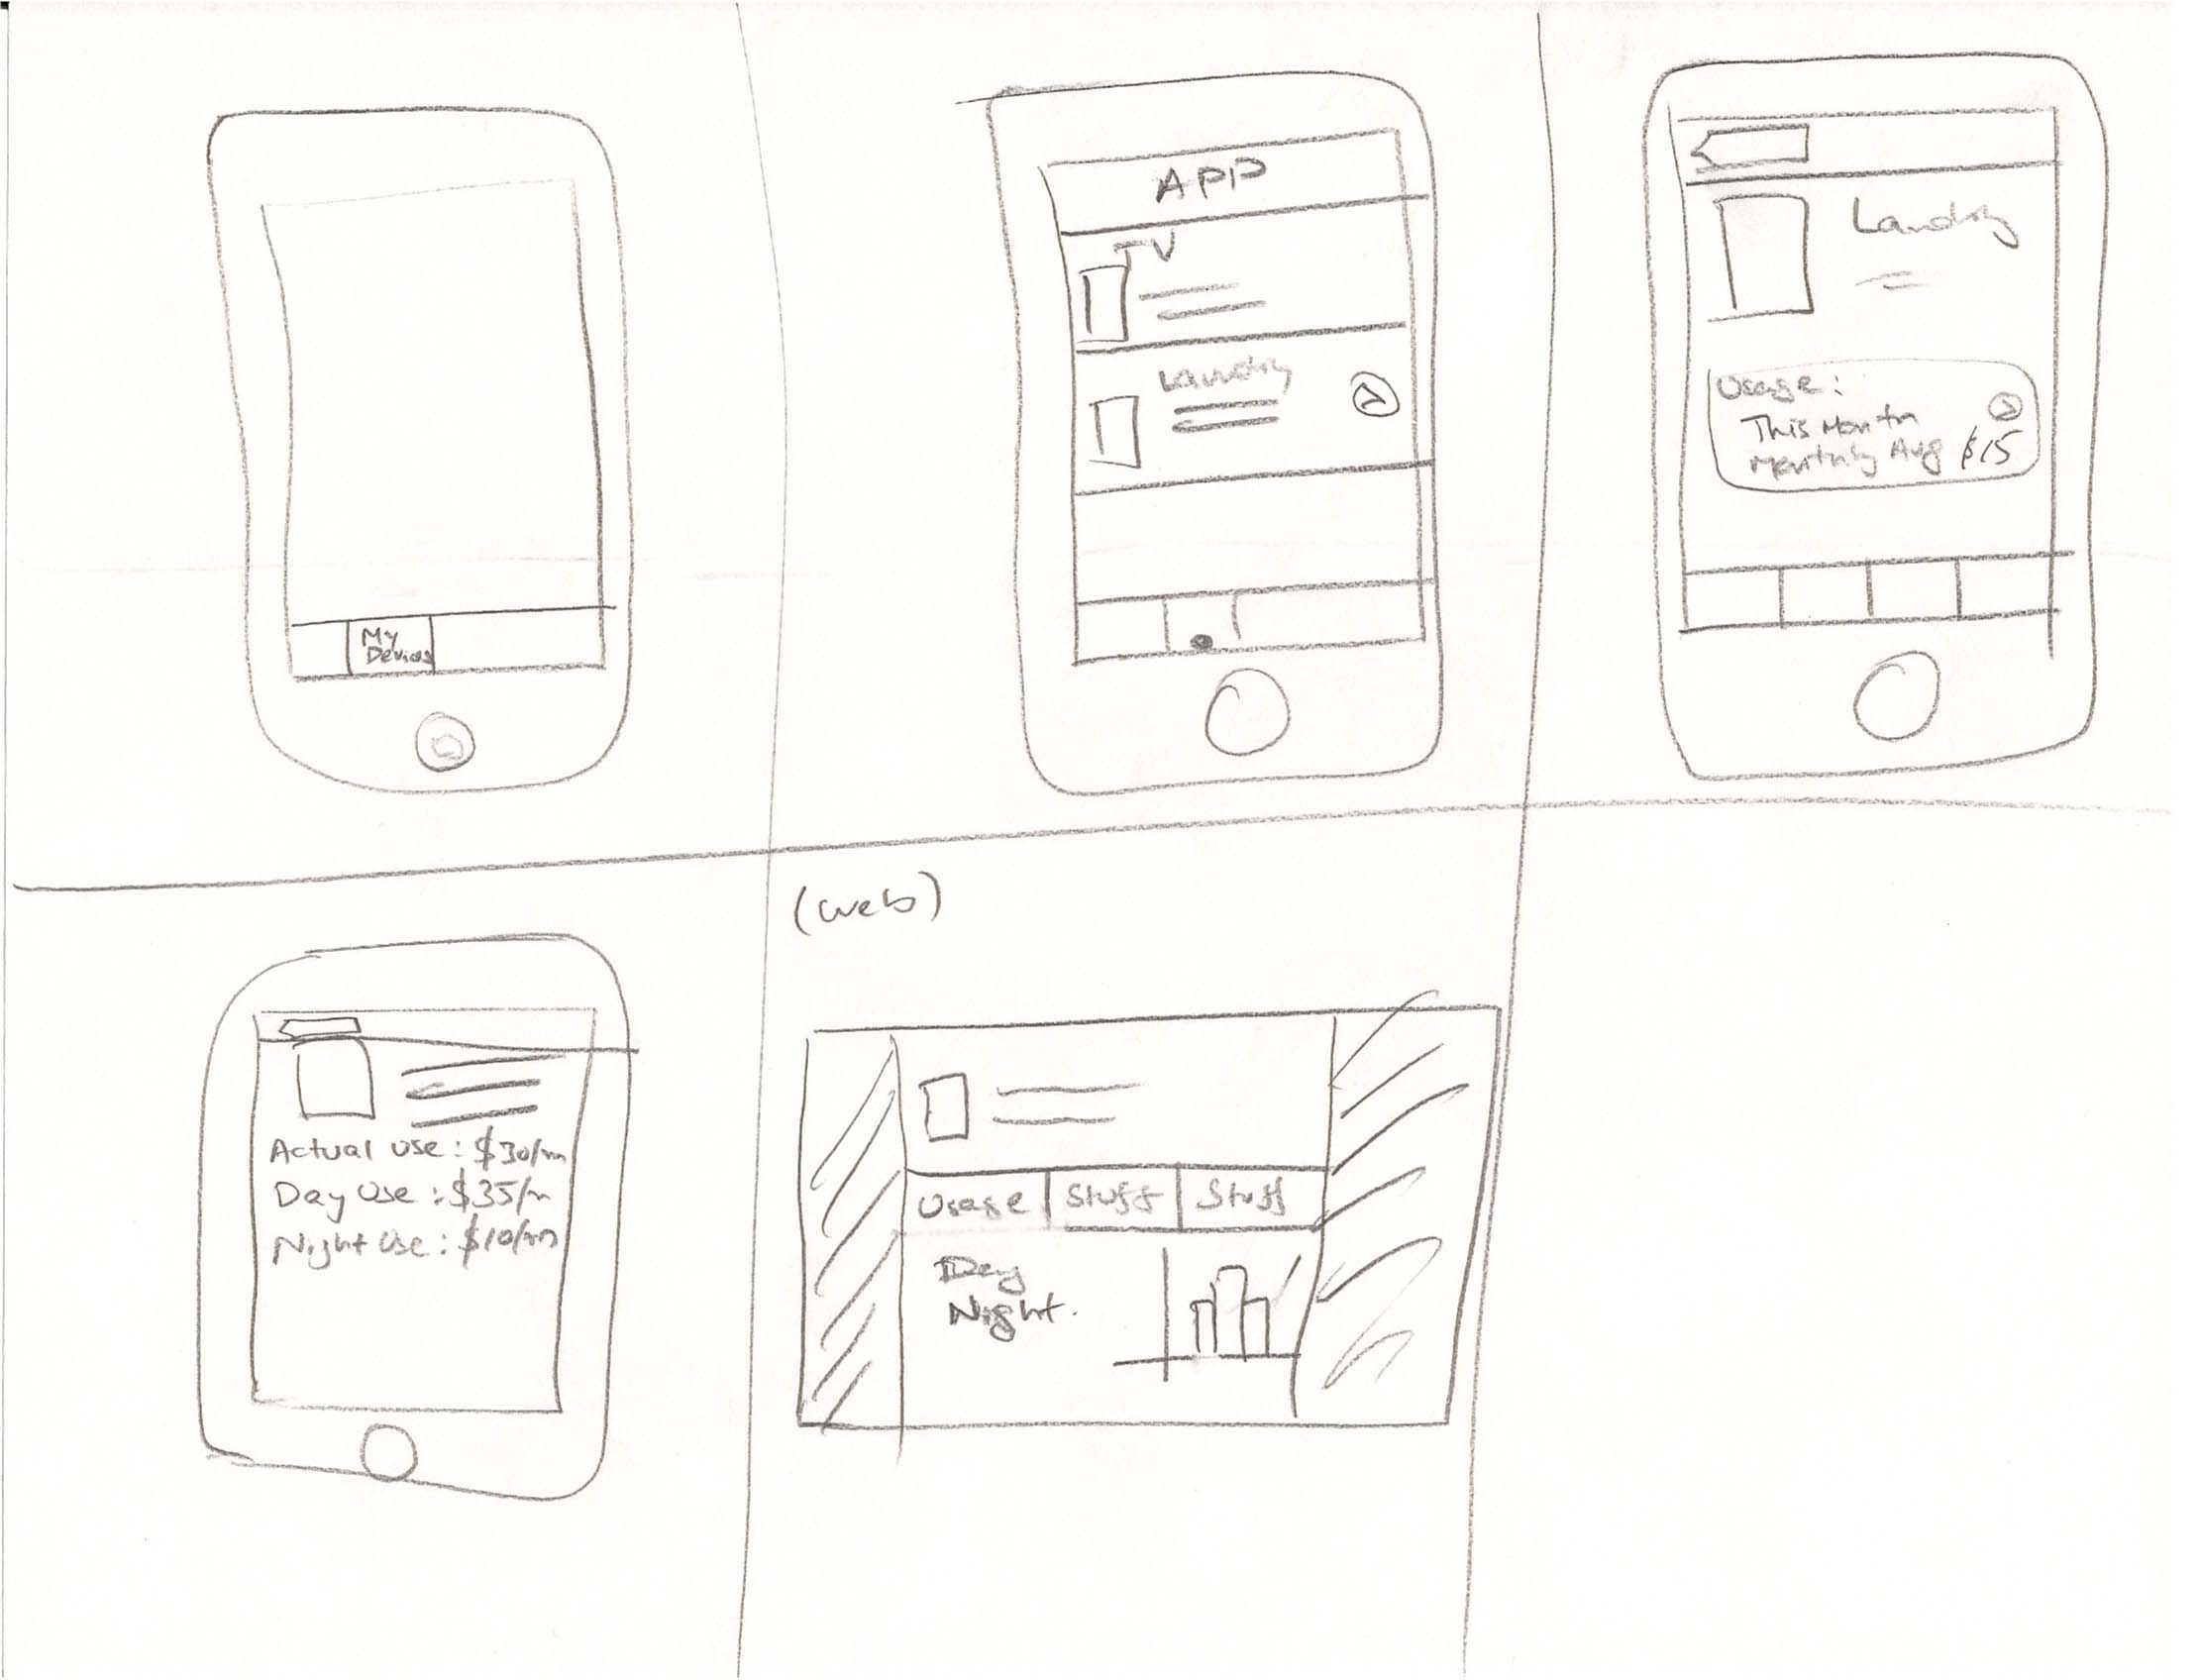 My
Devices
APP
TV
Laundry
Laundry
Usage:
This Month
Monthly Avg $15
Actual use: $30/m
Day Use: $35/m
Night Use: $10/m
(web)
Usage Stuff Stuff
Day
Night.